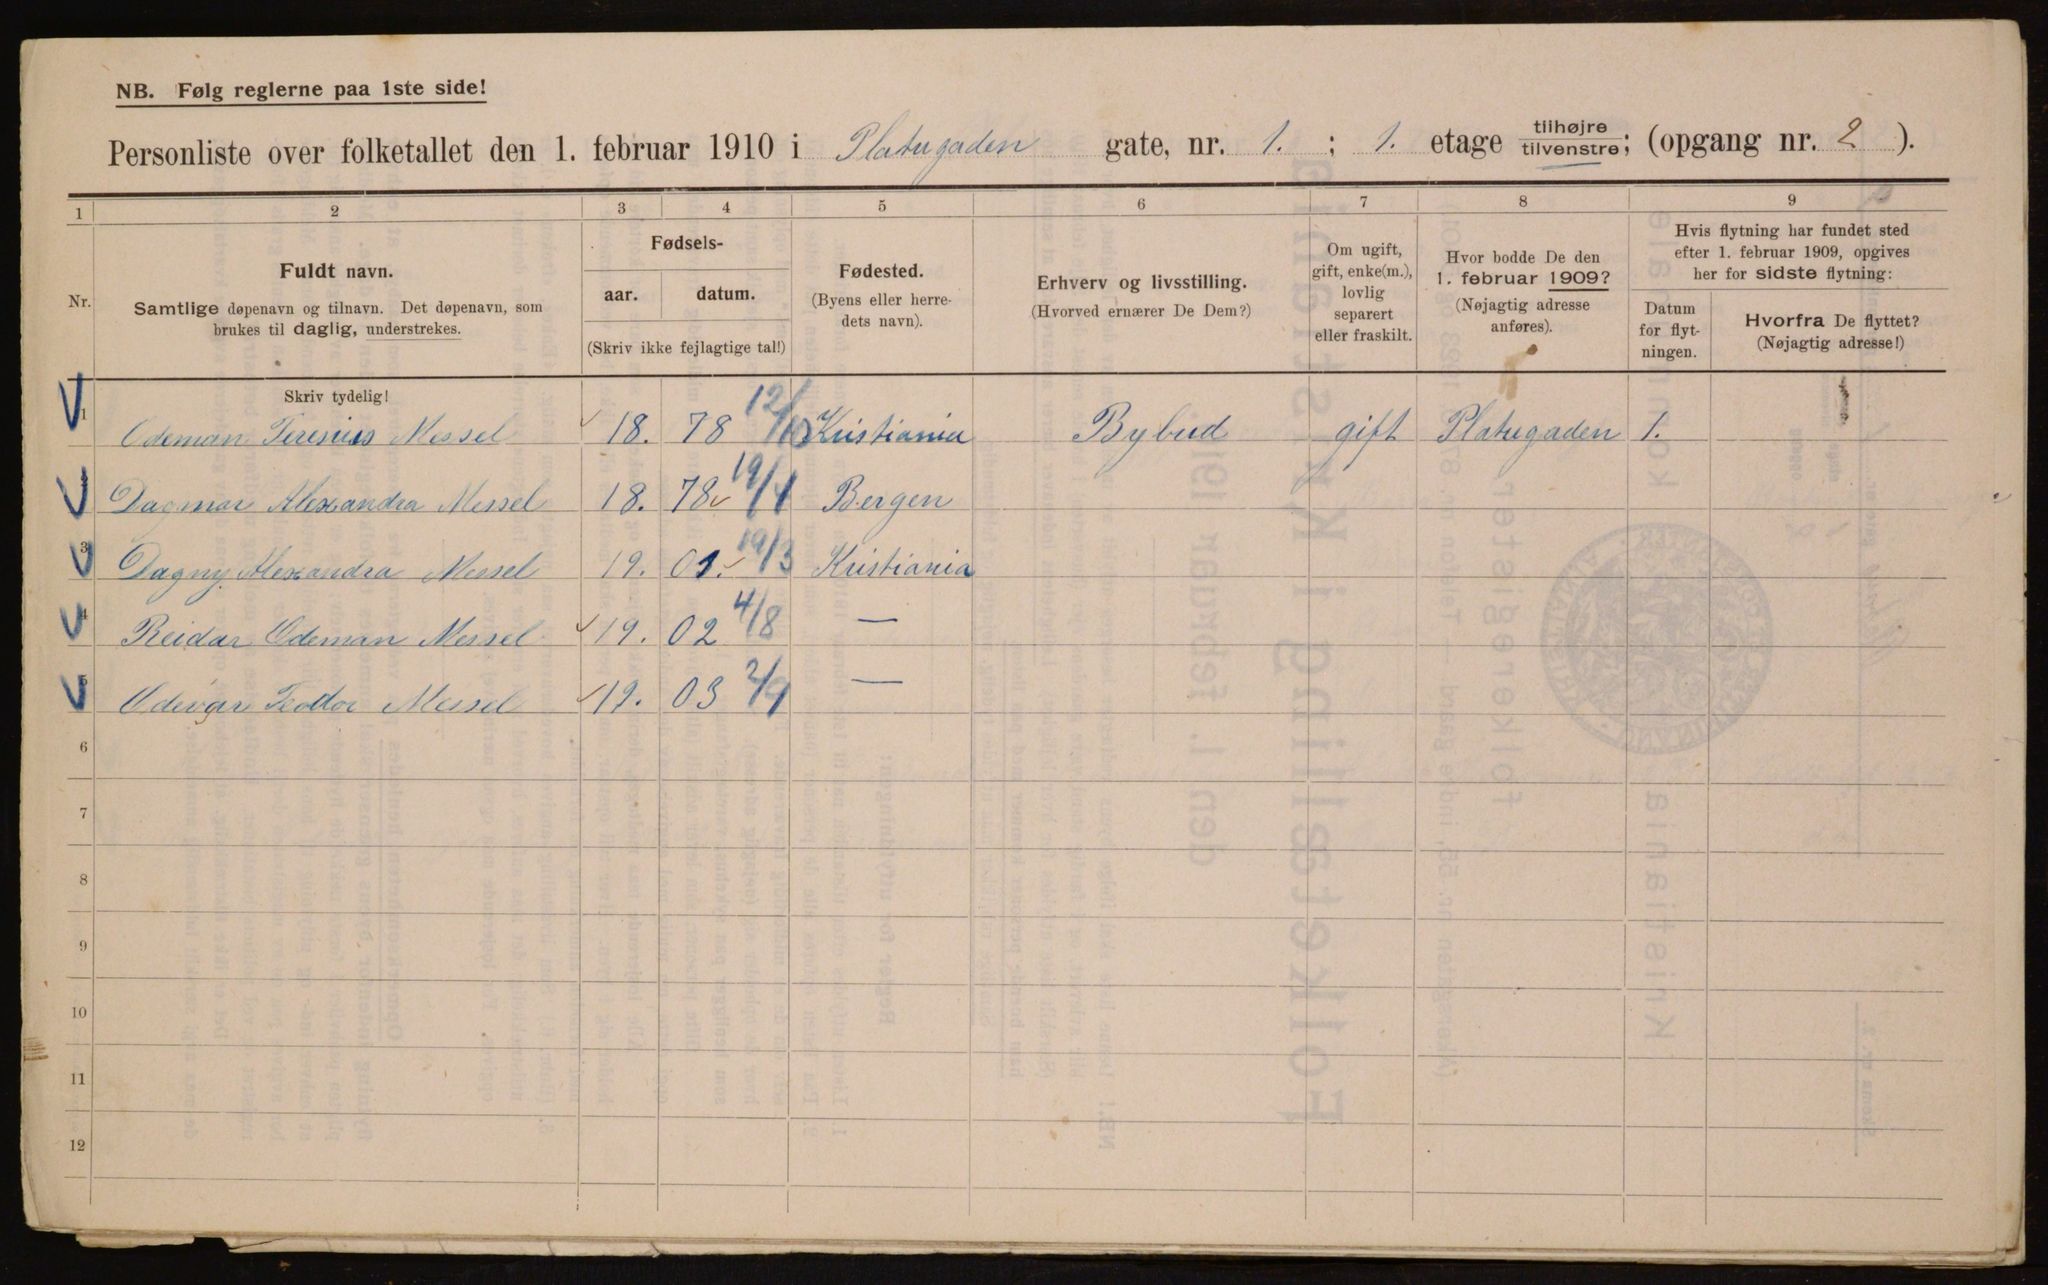 NB. Følg reglerne paa 1ste side!
Personliste over folketallet den 1. februar 1910 i Platugaden gate, nr. 1. ; 1. etage tilhøjre tilvenstre; (opgang nr. 2 ).
1 2 3 4 5 6 7 8 9
Nr.
Fuldt navn.
Samtlige døpenavn og tilnavn. Det døpenavn, som
brukes til daglig, understrekes.
Fødsels-
aar. datum.
(Skriv ikke fejlagtige tal!)
Fødested.
(Byens eller herre-
dets navn).
Erhverv og livsstilling.
(Hvorved ernærer De Dem?)
Om ugift,
gift, enke(m.),
lovlig
separert
eller fraskilt.
Hvor bodde De den
1. februar 1909?
(Nøjagtig adresse
anføres).
Hvis flytning har fundet sted
efter 1. februar 1909, opgives
her for sidste flytning:
Datum
for flyt-
ningen.
Hvorfra De flyttet?
(Nøjagtig adresse!)
Skriv tydelig!
1 Odeman Teresius Messel 18. 78 12/10 Kristiania Bybud gift Platugaden 1.
2 Dagmar Alexandra Messel 18. 78 19/1 Bergen
3 Dagny Alexandra Messel 19. 01. 19/3 Kristiania
4 Reidar Odeman Messel 19. 02 4/8 —
5 Odevar Teodor Messel 19. 03 2/9 —
6
7
8
9
10
11
12